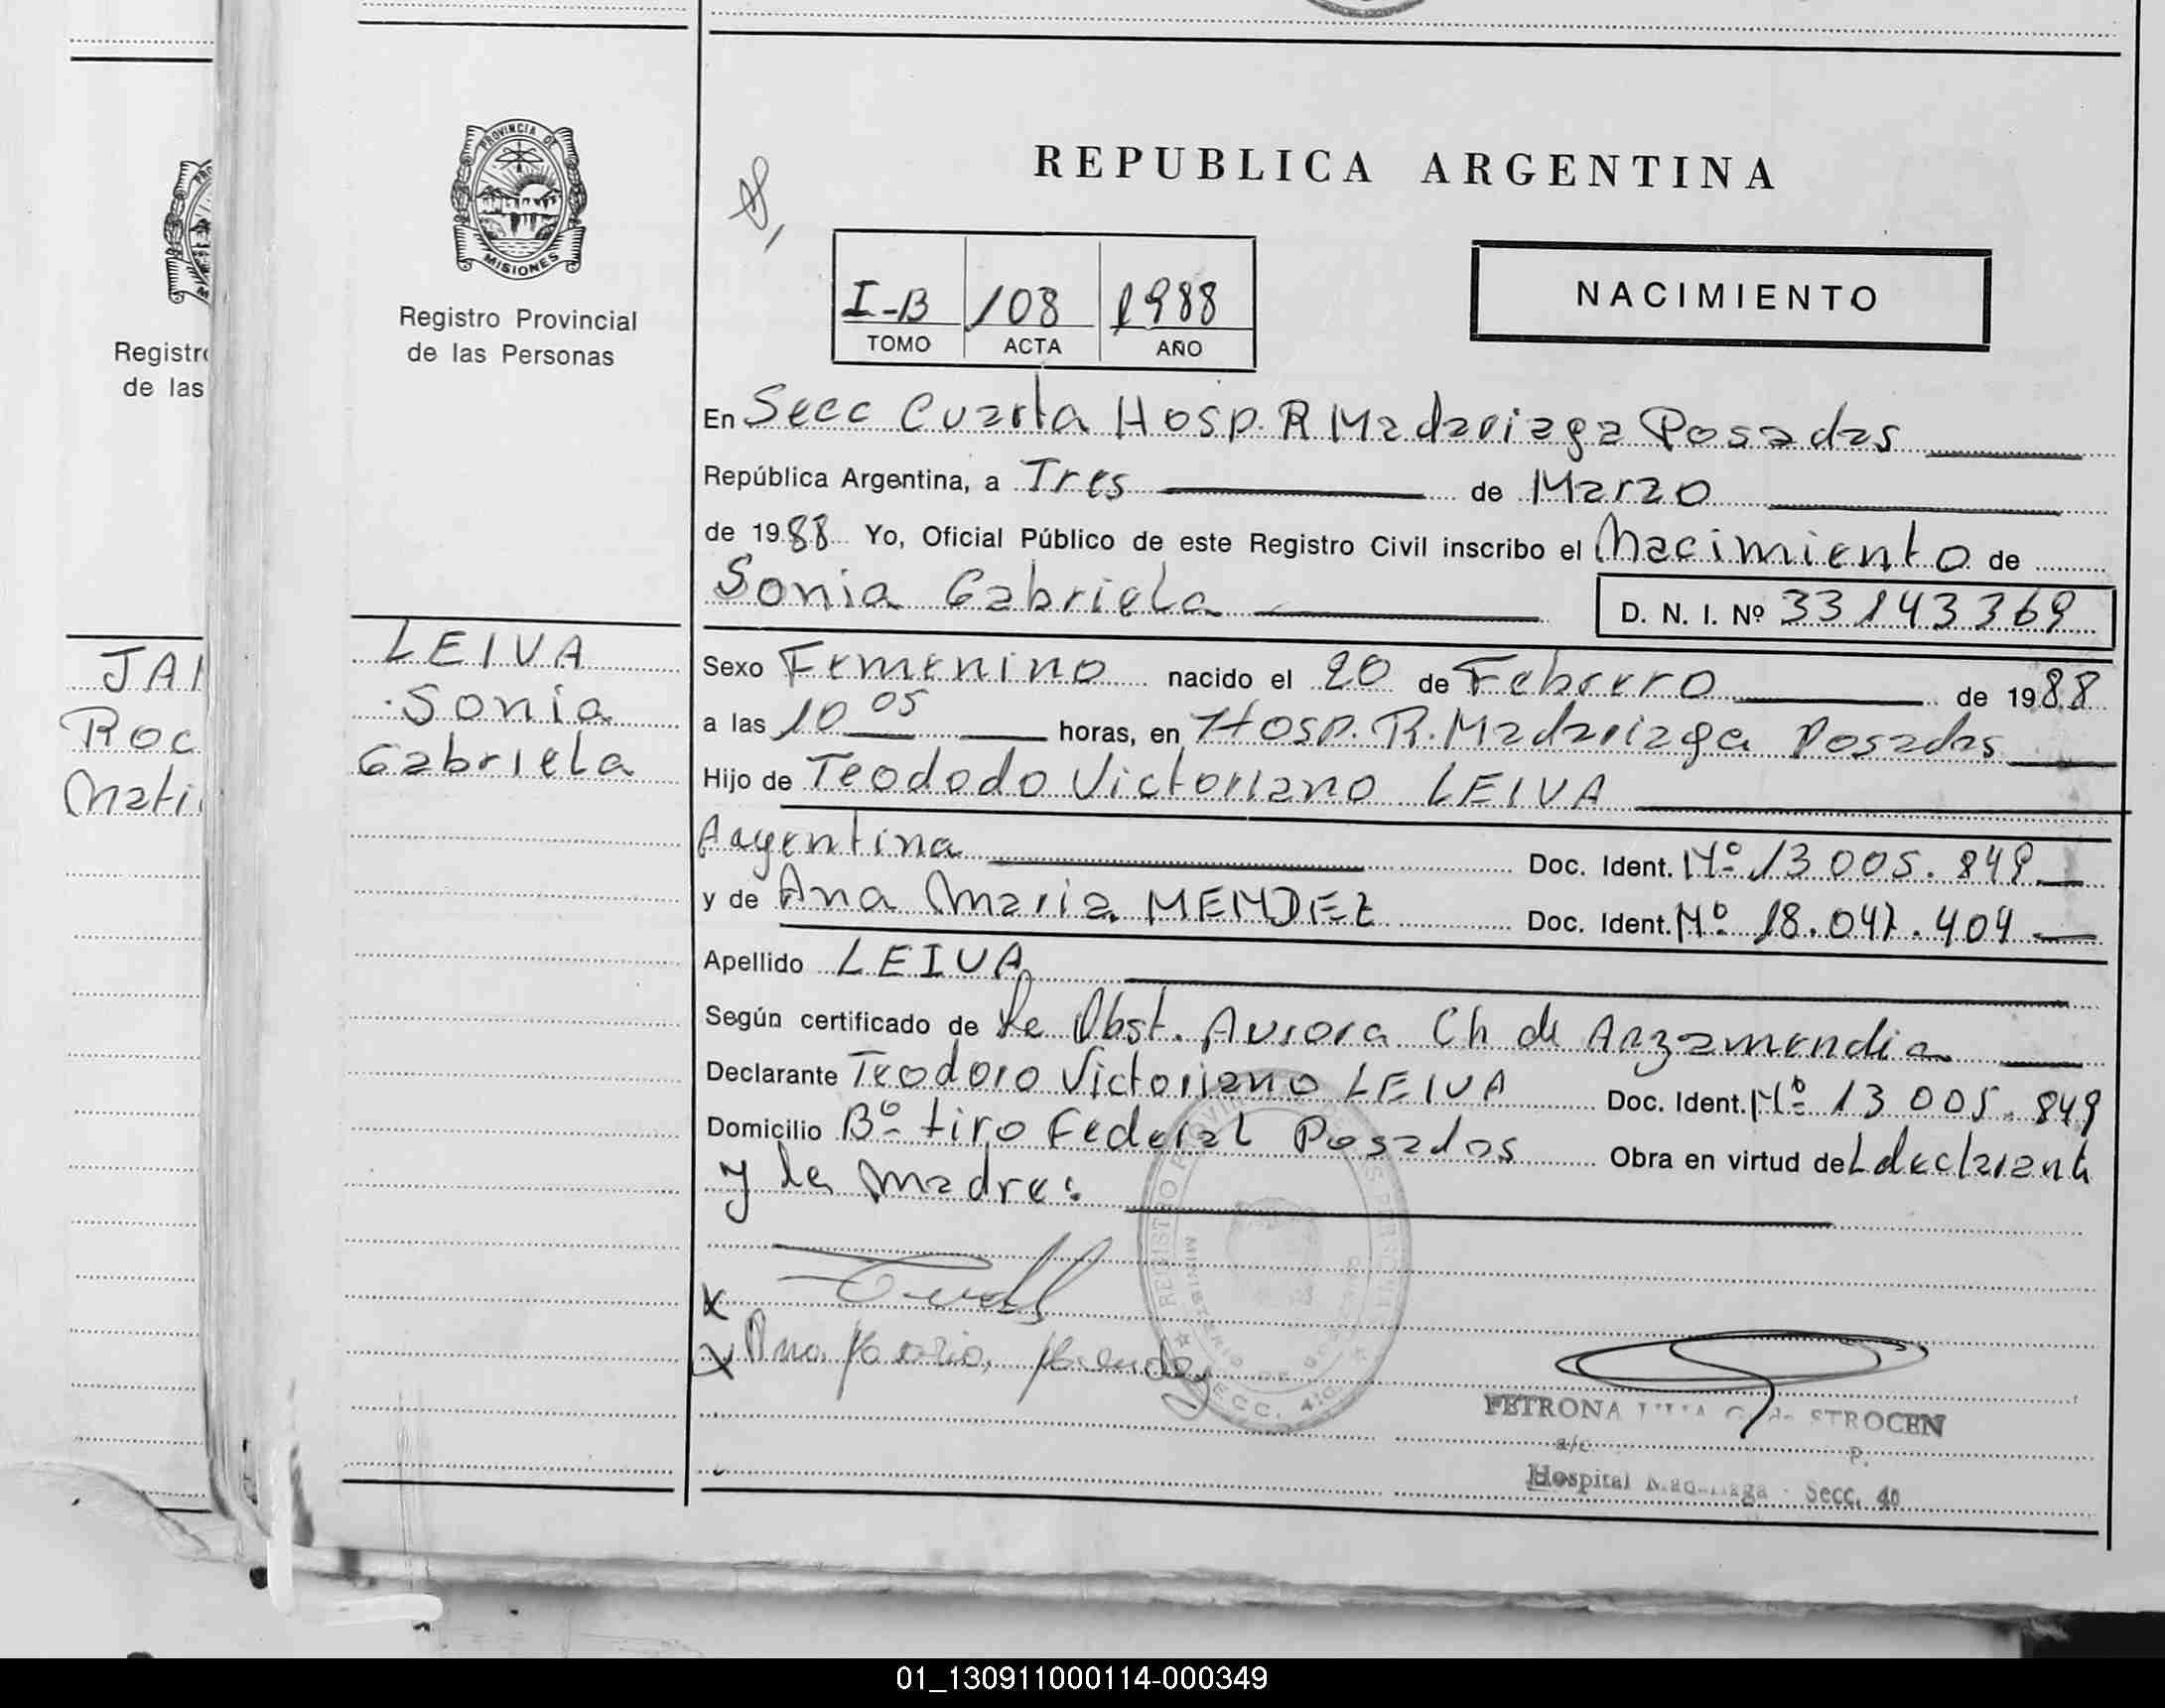 REPUBLICA ARGENTINA
PROVINCIA DE
MISIONES
Registro Provincial
de las Personas
I-B 108 1988
TOMO ACTA AÑO
NACIMIENTO
En Secc Cuarta Hosp. R Madariaga Posadas
República Argentina, a Tres de Marzo
de 1988 Yo, Oficial Público de este Registro Civil inscribo el Nacimiento de
Sonia Gabriela
D. N. I. Nº 33143369
LEIVA
Sonia
Gabriela
Sexo Femenino nacido el 20 de Febrero de 1988
a las 10 05 horas, en Hosp. R. Madariaga Posadas
Hijo de Teododo Victoriano LEIVA
Argentina Doc. Ident. Nº 13 005.849
y de Ana Maria MENDEZ Doc. Ident. Nº 18.047.404
Apellido LEIVA
Según certificado de la Obst. Aurora Ch de Arzamendia
Declarante Teodoro Victoriano LEIVA Doc. Ident. Nº 13 005.849
Domicilio Bº tiro Federal Posadas Obra en virtud del declarante
y la madre:
Ana Maria Mendez
REGISTRO
MINISTERIO DE GOBIERNO
SECC. 4ta.
PETRONA de STROCEN
a/c
Hospital Madariaga - Secc. 4a
Registro
de las
JAR
Roc
Mati
01_130911000114-000349